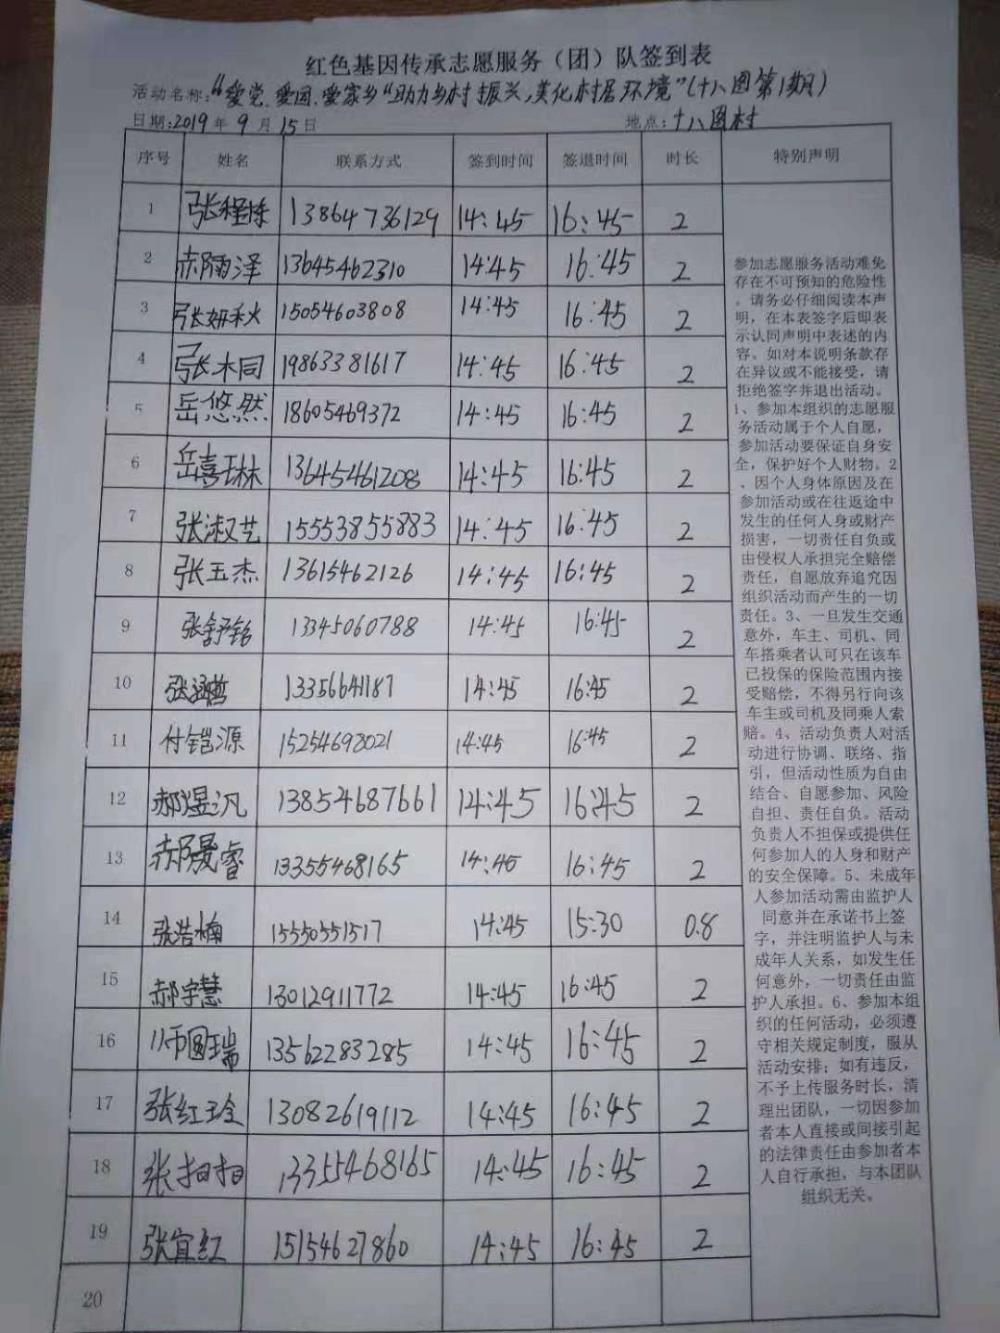 红色基因传承志愿服务（团）队签到表
活动名称:“爱党、爱国、爱家乡”助力乡村振兴,美化村居环境”(十八图第1期)
日期:2019年9月15日 地点:十八图村
序号 姓名 联系方式 签到时间 签退时间 时长 特别声明
1 张程 13864736129 14:45 16:45 2
2 郝雨泽 13645462310 14:45 16:45 2
3 张妍秋 15054603808 14:45 16:45 2
4 张木同 19863381617 14:45 16:45 2
5 岳悠然 18605469372 14:45 16:45 2
6 岳喜琳 13645461208 14:45 16:45 2
7 张淑艺 15553855883 14:45 16:45 2
8 张玉杰 13615462126 14:45 16:45 2
9 张舒铭 13345060788 14:45 16:45 2
10 张涵哲 13356641187 14:45 16:45 2
11 付铠源 15254698021 14:45 16:45 2
12 郝煜汎 13854687661 14:45 16:45 2
13 郝晟睿 13355468165 14:45 16:45 2
14 张浩楠 15550551517 14:45 15:30 0.8
15 郝宇慧 13012911772 14:45 16:45 2
16 师圆瑞 13562283285 14:45 16:45 2
17 张红玲 13082619112 14:45 16:45 2
18 张 13355468165 14:45 16:45 2
19 张宜红 15154627860 14:45 16:45 2
20
参加志愿服务活动难免
存在不可预知的危险性
。请务必仔细阅读本声
明，在本表签字后即表
示认同声明中表述的内
容。如对本说明条款存
在异议或不能接受，请
拒绝签字并退出活动。
1、参加本组织的志愿服
务活动属于个人自愿，
参加活动要保证自身安
全，保护好个人财物。2
、因个人身体原因及在
参加活动或在往返途中
发生的任何人身或财产
损害，一切责任自负或
由侵权人承担完全赔偿
责任，自愿放弃追究因
组织活动而产生的一切
责任。3、一旦发生交通
意外，车主、司机、同
车搭乘者认可只在该车
已投保的保险范围内接
受赔偿，不得另行向该
车主或司机及同乘人索
赔。4、活动负责人对活
动进行协调、联络、指
引，但活动性质为自由
结合、自愿参加、风险
自担、责任自负。活动
负责人不担保或提供任
何参加人的人身和财产
的安全保障。5、未成年
人参加活动需由监护人
同意并在承诺书上签
字，并注明监护人与未
成年人关系，如发生任
何意外，一切责任由监
护人承担。6、参加本组
织的任何活动，必须遵
守相关规定制度，服从
活动安排；如有违反，
不予上传服务时长，清
理出团队，一切因参加
者本人直接或间接引起
的法律责任由参加者本
人自行承担，与本团队
组织无关。